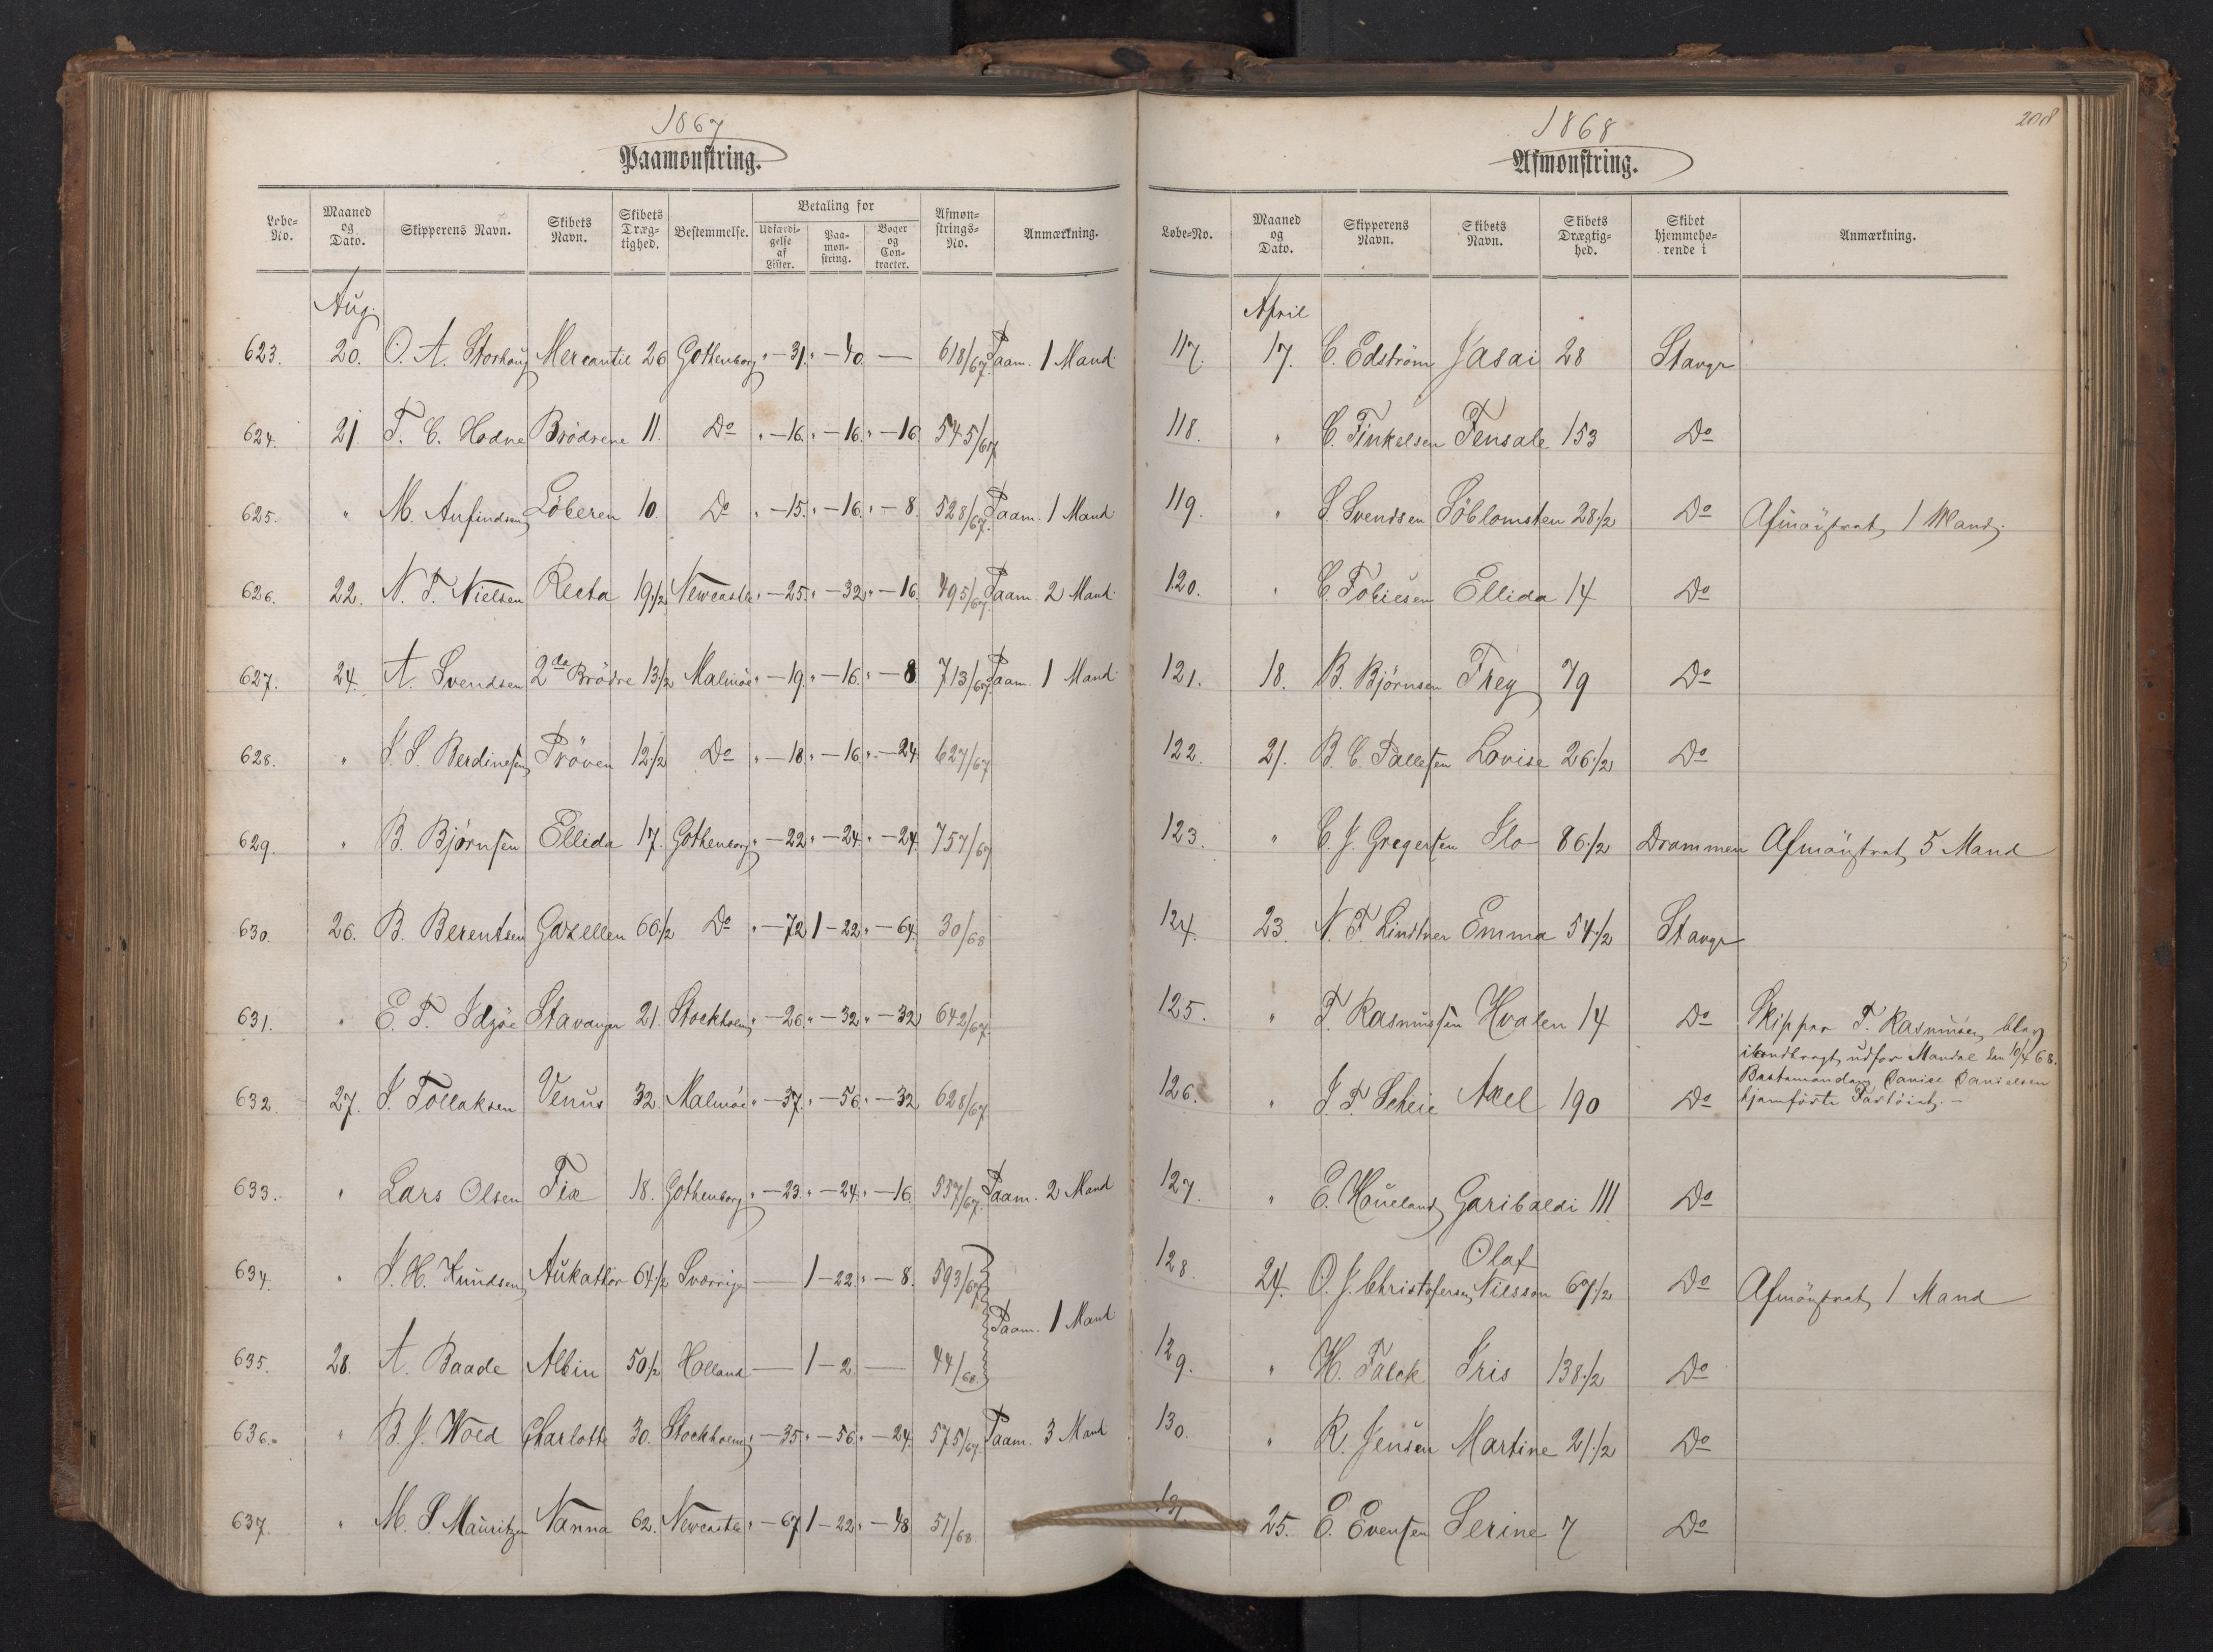 1867
Paamønstring.
Løbe-No. Maaned og Dato. Skipperens Navn. Skibets Navn. Skibets Drægtighed. Bestemmelse. Betaling for Udfærdigelse af Lister. Paamønstring. Bøger og Contracter. Afmønstrings-No. Anmærkning.
Aug.
623. 20. O. A. Storhaug Mercantil 26 Gothenborg " — 31. " — 40. — 618/67. Paam. 1 Mand
624. 21. T. C. Hodne Brödrene 11. Do " — 16. " — 16. " — 16 545/67
625. " M. Anfindsen Löberen 10. Do " — 15. " — 16. " — 8. 528/67. Paam. 1 Mand
626. 22. N. T. Nielsen Recta 19 1/2 Newcastle " — 25. " — 32 " — 16. 495/67. Paam. 2 Mand
627. 24. A. Svendsen 2de Brödre 13 1/2 Malmöe " — 19. " — 16. " — 8 713/67 Paam. 1 Mand
628. " S. S. Berdinesen Pröven 12 1/2 Do " — 18. " — 16. " — 24. 627/67
629. " B. Bjørnsen Ellida 17. Gothenborg " — 22 " — 24. " — 24. 757/67
630. 26. B. Berentsen Gazellen 66 1/2 Do " — 72 1 — 22 " — 64. 30/68
631. " E. T. Idsöe Stavanger 21. Stockholm " — 26 " — 32 " — 32 642/67.
632. 27. J. Tollaksen Venus 32. Malmöe " — 37. " — 56. " — 32 628/67.
633. " Lars Olsen Fix 18. Gothenborg " — 23. " — 24. " — 16. 557/67. Paam. 2 Mand
634. " J. H. Knudsen Aukathor 64 1/2 Sverrige — 1 — 22. " — 8. 593/67
Paam. 1 Mand
635. 28. A. Baade Albin 50 1/2 Holland — 1 — 2. — 44/68.
636. " B. J. Wold Charlotte 30. Stockholm " — 35. " — 56. " — 24. 575/67. Paam. 3 Mand
637. " M. S Mauritzen Nanna 62. Newcastle " — 67 1 — 22 " — 48 51/68
1868
208
Afmønstring.
Løbe-No. Maaned og Dato. Skipperens Navn. Skibets Navn. Skibets Drægtighed. Skibet hjemmehørende i Anmærkning.
April
117. 17. C. Edström Jasai 28 Stavgr
118. " C. Tinkelsen Tensale 153 Do
119. " S. Svendsen Söblomsten 28 1/2 Do Afmönstrat 1 Mand.
120. " C. Tobiesen Ellida 14 Do
121. 18. B. Bjørnsen Frey 79 Do
122. 21. B. C. Pallesen Lovise 26 1/2 Do
123. " C. J. Gregersen Slo 86 1/2 Drammen Afmönstrat 5 Mand
124. 23. N. T. Lindtner Emma 54 1/2 Stavgr
125. " T. Rasmussen Hvalen 14 Do Skipper T. Rasmusen blev
ilandbragt udfor Mandal den 10/4 68.
Bestemanden Danise Danielsen
hjemförte Fartöiet. —
126. " J. T. Scheie Axel 190 Do
127. " E. Houeland Garibaldi 111 Do
128. 24. O. J. Christofersen Olaf Nilsson 67 1/2 Do Afmönstrat 1 Mand
129. " H. Falck Iris 138 1/2 Do
130. " R. Jensen Martine 21 1/2 Do
131. 25. E. Evensen Serine 7 Do